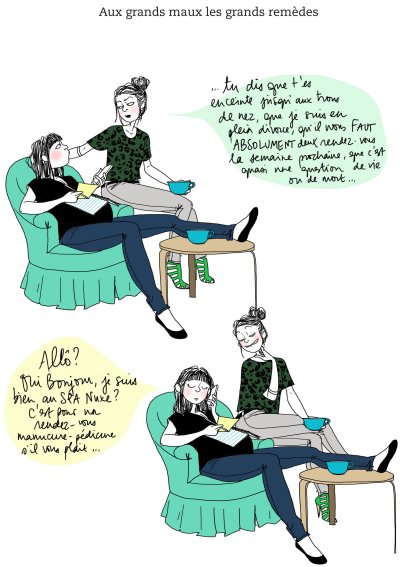 Aux grands maux les grands remèdes
... tu dis que t'es
enceinte jusqu'aux trous
de nez, que je suis en
plein divorce, qu'il nous FAUT
ABSOLUMENT deux rendez-vous
la semaine prochaine, que c'est
quasi une question de vie
ou de mort...
Allô?
Oui Bonjour, je suis
bien au SPA Nuxe?
C'est pour un
rendez-vous
manucure-pédicure
s'il vous plaît...